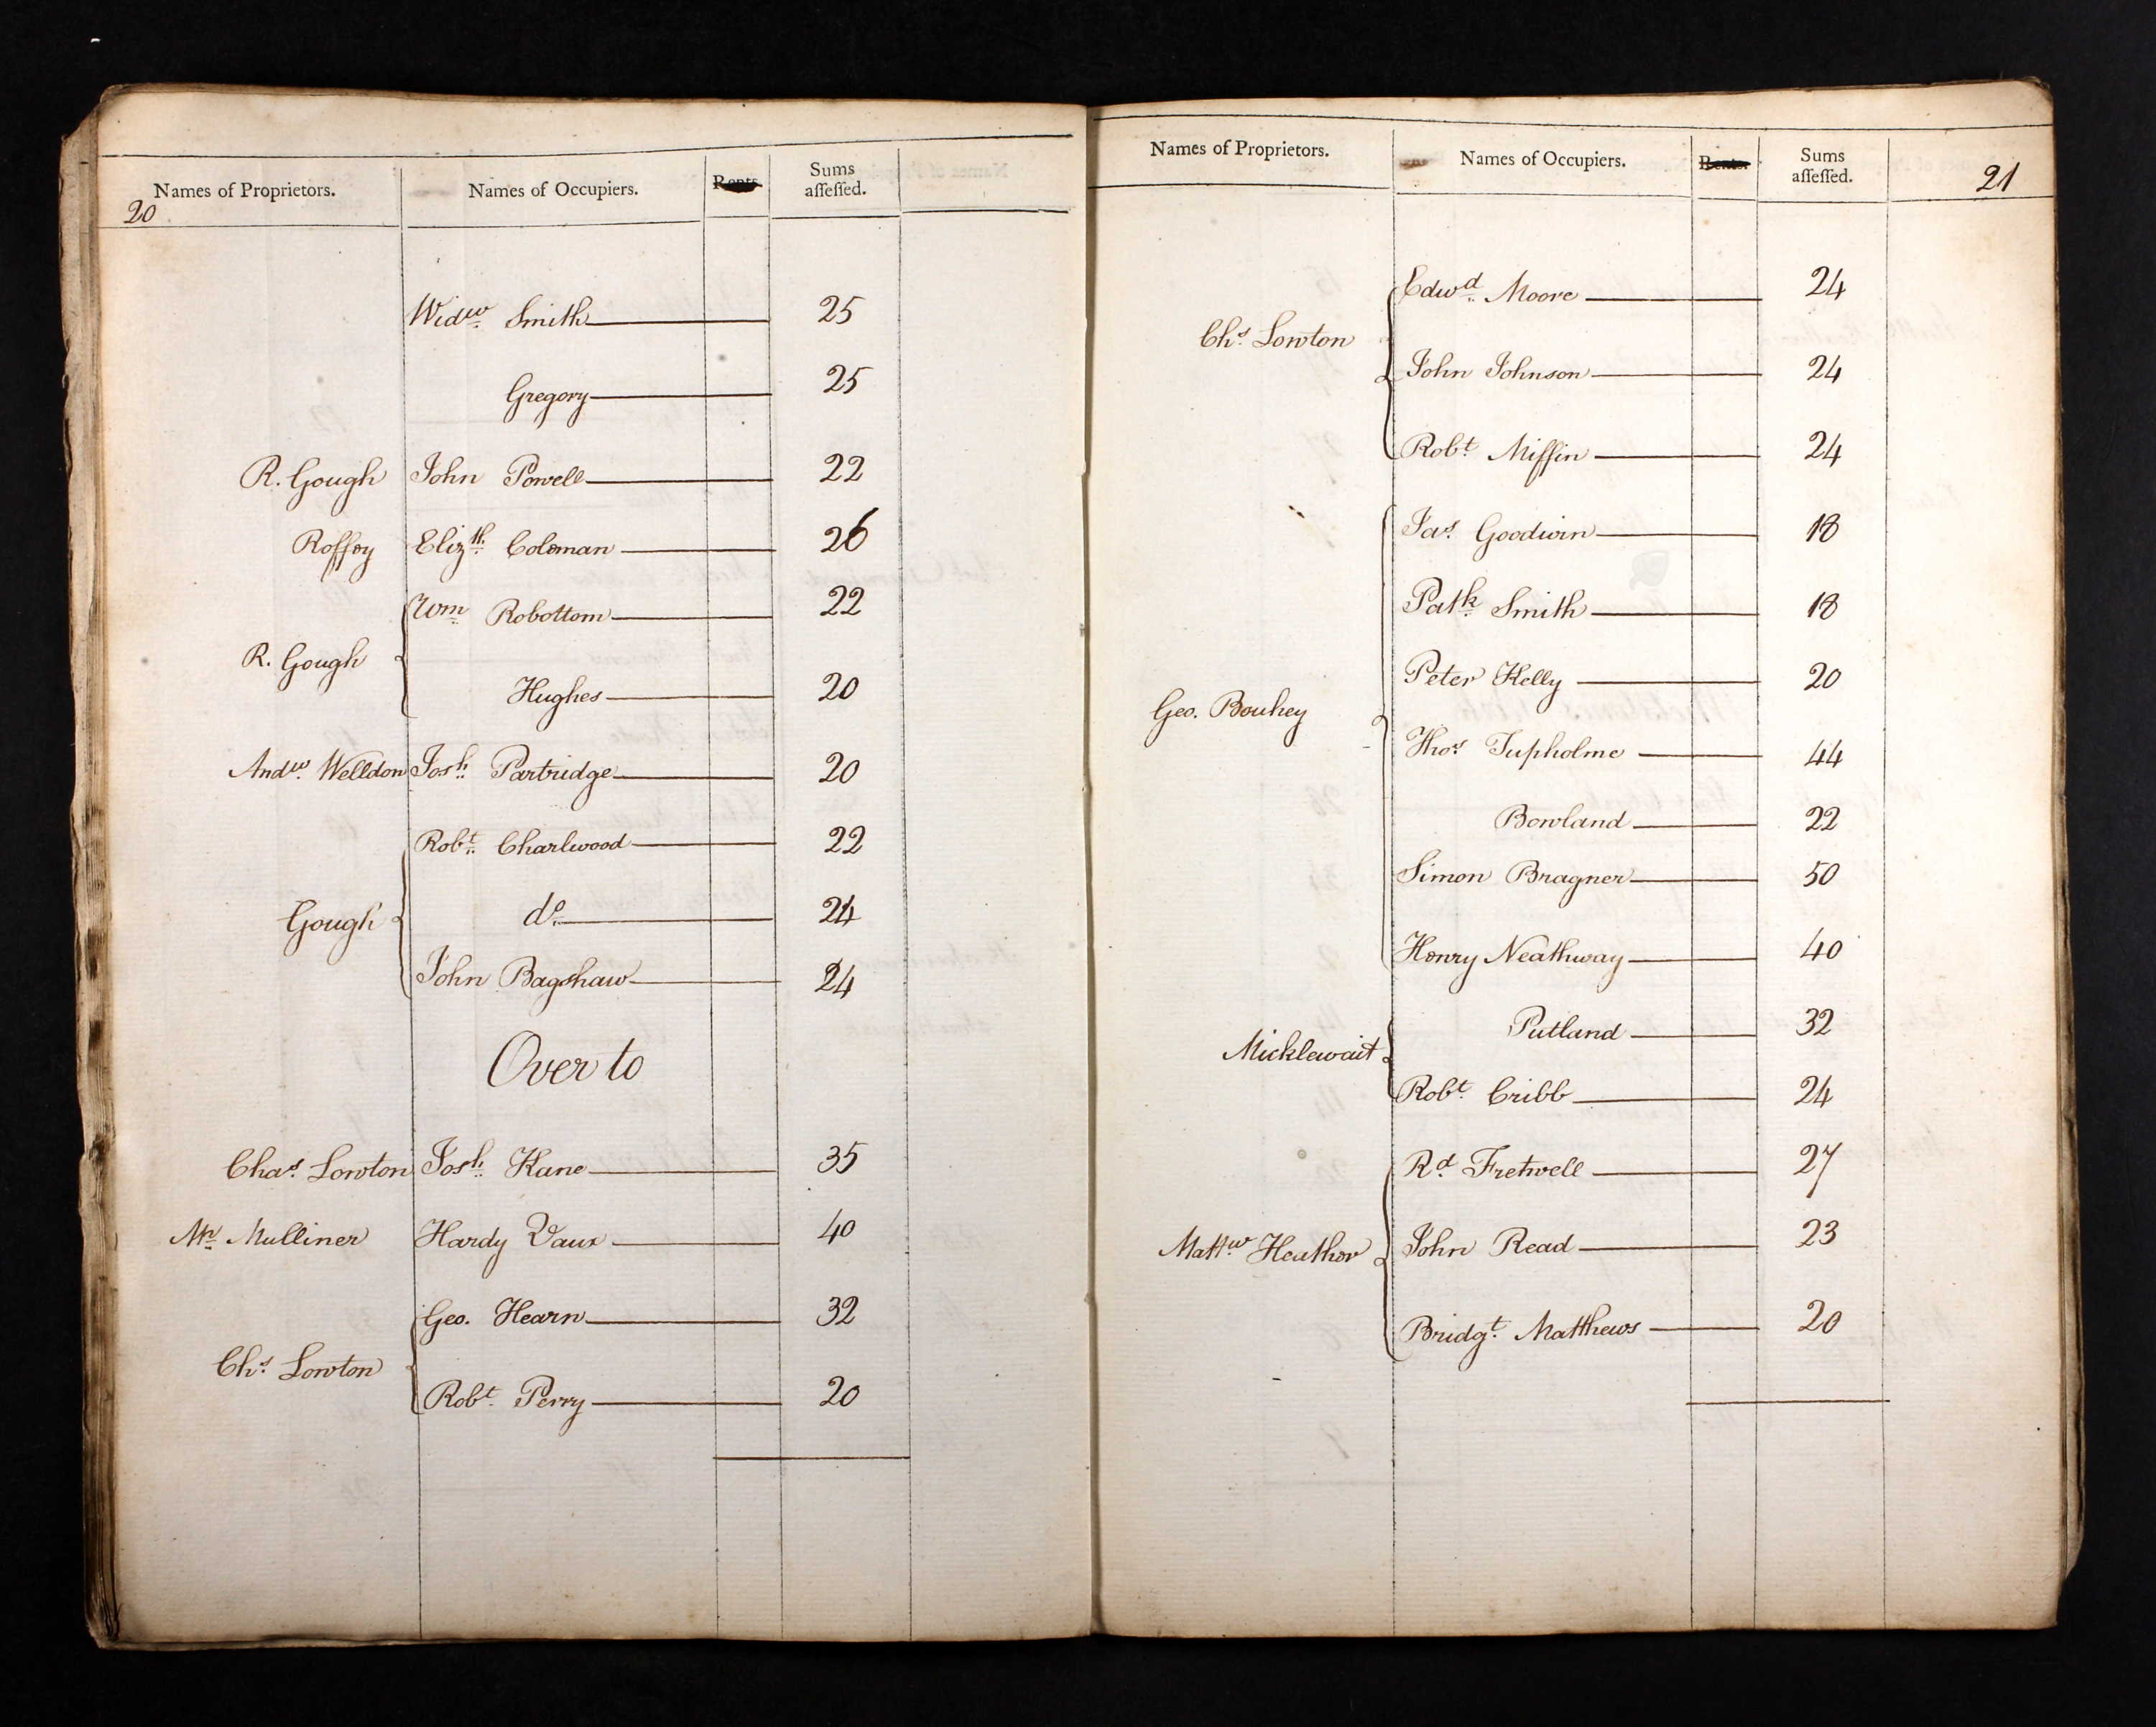 Names of Proprietors. Names of Occupiers. Rents Sums assessed.
20
Widw. Smith 25
Gregory 25
R. Gough John Powell 22
Roffey Elizth. Coleman 26
Wm Robottom 22
R. Gough
Hughes 20
Andw. Welldon Josh. Partridge 20
Robt. Charlwood 22
Gough do. 24
John Bagshaw 24
Over to
Chas. Lowton Josh. Kane 35
Mr. Mulliner Hardy Vaux 40
Geo. Hearn 32
Chs. Lowton
Robt. Perry 20
Names of Proprietors. Names of Occupiers. Rents. Sums assessed. 21
Edwd. Moore 24
Chs. Lowton
John Johnson 24
Robt. Miffin 24
Jas. Goodwin 18
Patk. Smith 18
Peter Kelly 20
Geo. Bouhey
Thos. Tupholme 44
Bowland 22
Simon Bragner 50
Henry Neathway 40
Putland 32
Micklewait
Robt. Cribb 24
Rd. Fretwell 27
Mattw. Heather John Read 23
Bridgt. Matthews 20